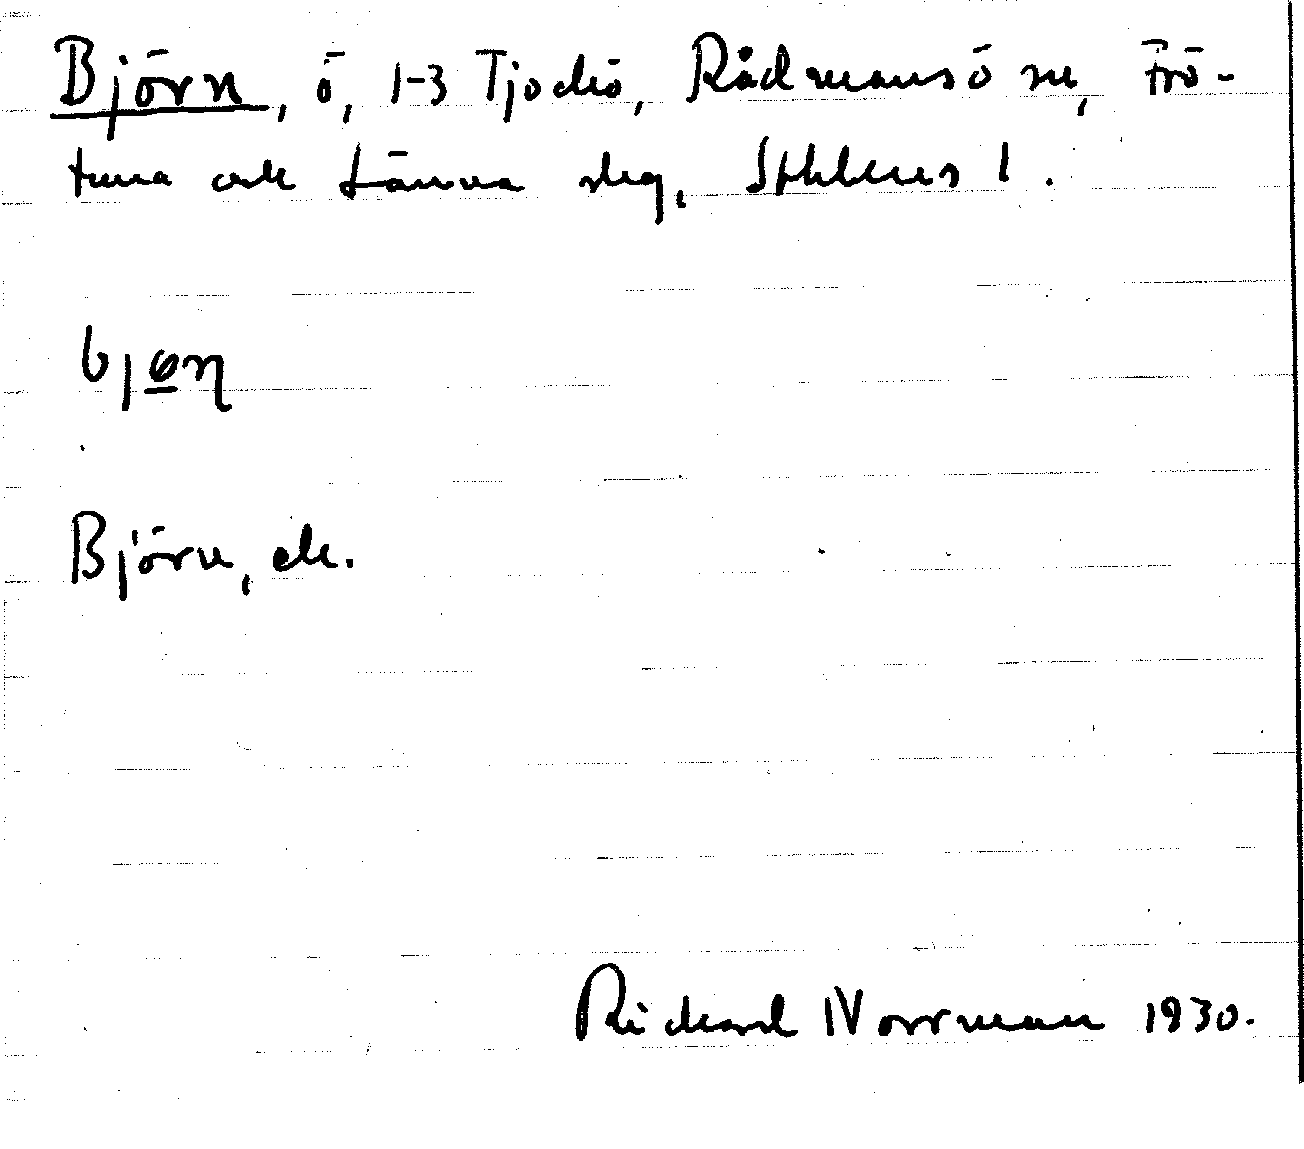 Björn, ö, 1-3 Tjockö, Rådmansö sn, Frö-
tuna och Länna skg, Sthlms l.
bjøṇ
Björn, ek.
Rickard Norrman 1930.